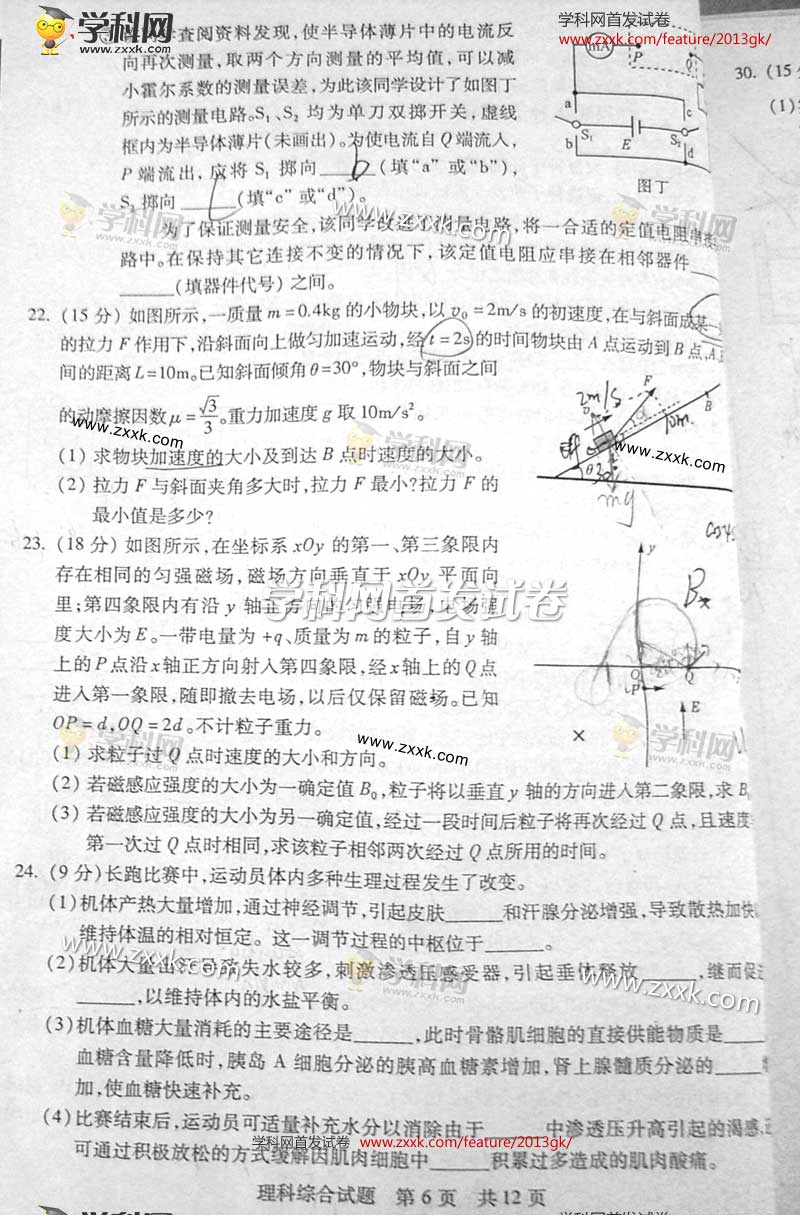 学科网首发试卷
www.zxxk.com/feature/2013gk/
学科网
www.zxxk.com
查阅资料发现,使半导体薄片中的电流反
向再次测量,取两个方向测量的平均值,可以减
小霍尔系数的测量误差,为此该同学设计了如图丁
所示的测量电路。S₁、S₂ 均为单刀双掷开关,虚线
框内为半导体薄片(未画出)。为使电流自 Q 端流入,
P 端流出,应将 S₁ 掷向______(填“a”或“b”),
S₂ 掷向______(填“c”或“d”)。
为了保证测量安全,该同学改进了测量电路,将一合适的定值电阻串接
路中。在保持其它连接不变的情况下,该定值电阻应串接在相邻器件
______(填器件代号)之间。
mA
P
Q
a
b
S₁
E
S₂
c
d
图丁
30. (15
(1)
22. (15 分) 如图所示,一质量 m=0.4kg 的小物块,以 v₀=2m/s 的初速度,在与斜面成某一
的拉力 F 作用下,沿斜面向上做匀加速运动,经 t=2s 的时间物块由 A 点运动到 B 点,A
间的距离 L=10m。已知斜面倾角 θ=30°,物块与斜面之间
的动摩擦因数 μ=√3/3。重力加速度 g 取 10m/s²。
(1) 求物块加速度的大小及到达 B 点时速度的大小。
(2) 拉力 F 与斜面夹角多大时,拉力 F 最小?拉力 F 的
最小值是多少?
2m/s
F
B
10m
θ
mg
23. (18 分) 如图所示,在坐标系 xOy 的第一、第三象限内
存在相同的匀强磁场,磁场方向垂直于 xOy 平面向
里;第四象限内有沿 y 轴正方向的匀强电场,电场强
度大小为 E。一带电量为 +q、质量为 m 的粒子,自 y 轴
上的 P 点沿 x 轴正方向射入第四象限,经 x 轴上的 Q 点
进入第一象限,随即撤去电场,以后仅保留磁场。已知
OP=d,OQ=2d。不计粒子重力。
(1) 求粒子过 Q 点时速度的大小和方向。
(2) 若磁感应强度的大小为一确定值 B₀,粒子将以垂直 y 轴的方向进入第二象限,求 B₀
(3) 若磁感应强度的大小为另一确定值,经过一段时间后粒子将再次经过 Q 点,且速度
第一次过 Q 点时相同,求该粒子相邻两次经过 Q 点所用的时间。
y
B
O
Q
P
E
×
学科网首发试卷
24. (9 分)长跑比赛中,运动员体内多种生理过程发生了改变。
(1)机体产热大量增加,通过神经调节,引起皮肤______和汗腺分泌增强,导致散热加快
维持体温的相对恒定。这一调节过程的中枢位于______。
(2)机体大量出汗导致失水较多,刺激渗透压感受器,引起垂体释放______,继而促进
______,以维持体内的水盐平衡。
(3)机体血糖大量消耗的主要途径是______,此时骨骼肌细胞的直接供能物质是______
血糖含量降低时,胰岛 A 细胞分泌的胰高血糖素增加,肾上腺髓质分泌的______
加,使血糖快速补充。
(4)比赛结束后,运动员可适量补充水分以消除由于______中渗透压升高引起的渴感
可通过积极放松的方式缓解因肌肉细胞中______积累过多造成的肌肉酸痛。
学科网首发试卷 www.zxxk.com/feature/2013gk/
理科综合试题 第 6 页 共 12 页